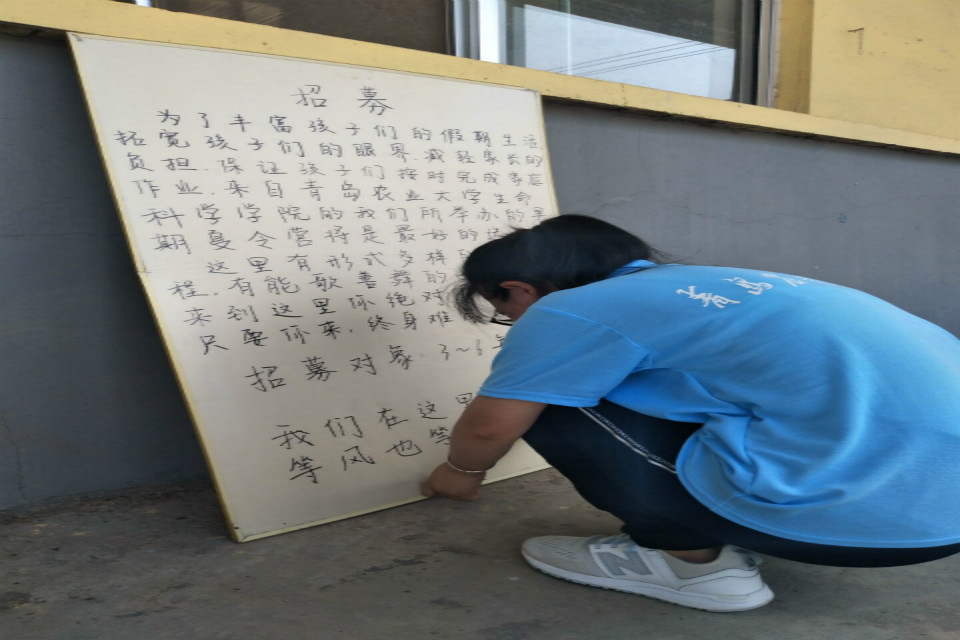 招募
为了丰富孩子们的假期生活
拓宽孩子们的眼界.减轻家长的
负担.保证孩子们按时完成家庭
作业.来自青岛农业大学生命
科学学院的我们所举办的
期夏令营将是最好的
这里有形式多样
程.有能歌善舞的
来到这里你绝对
只要你来.终身难
招募对象:3~6年
我们在这里
等风也等
青岛